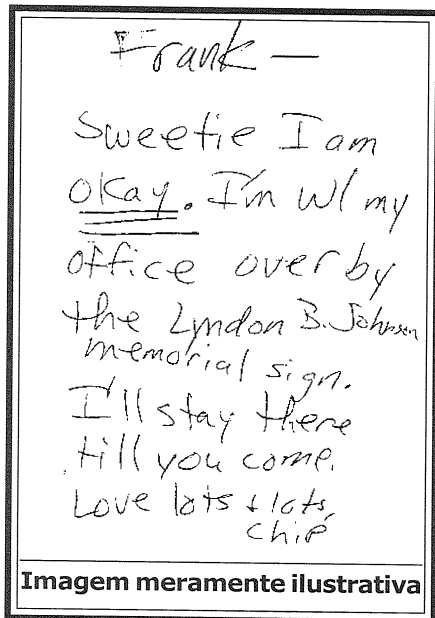 Frank —
Sweetie I am
okay. I'm w/ my
office over by
the Lyndon B. Johnson
memorial sign.
I'll stay there
till you come.
Love lots & lots,
Chip
Imagem meramente ilustrativa